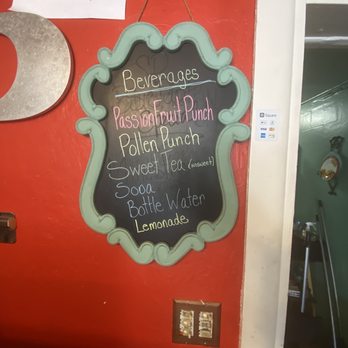 Beverages
PassionFruit Punch
Pollen Punch
Sweet Tea (unsweet)
Soda
Bottle Water
Lemonade
Square
VISA